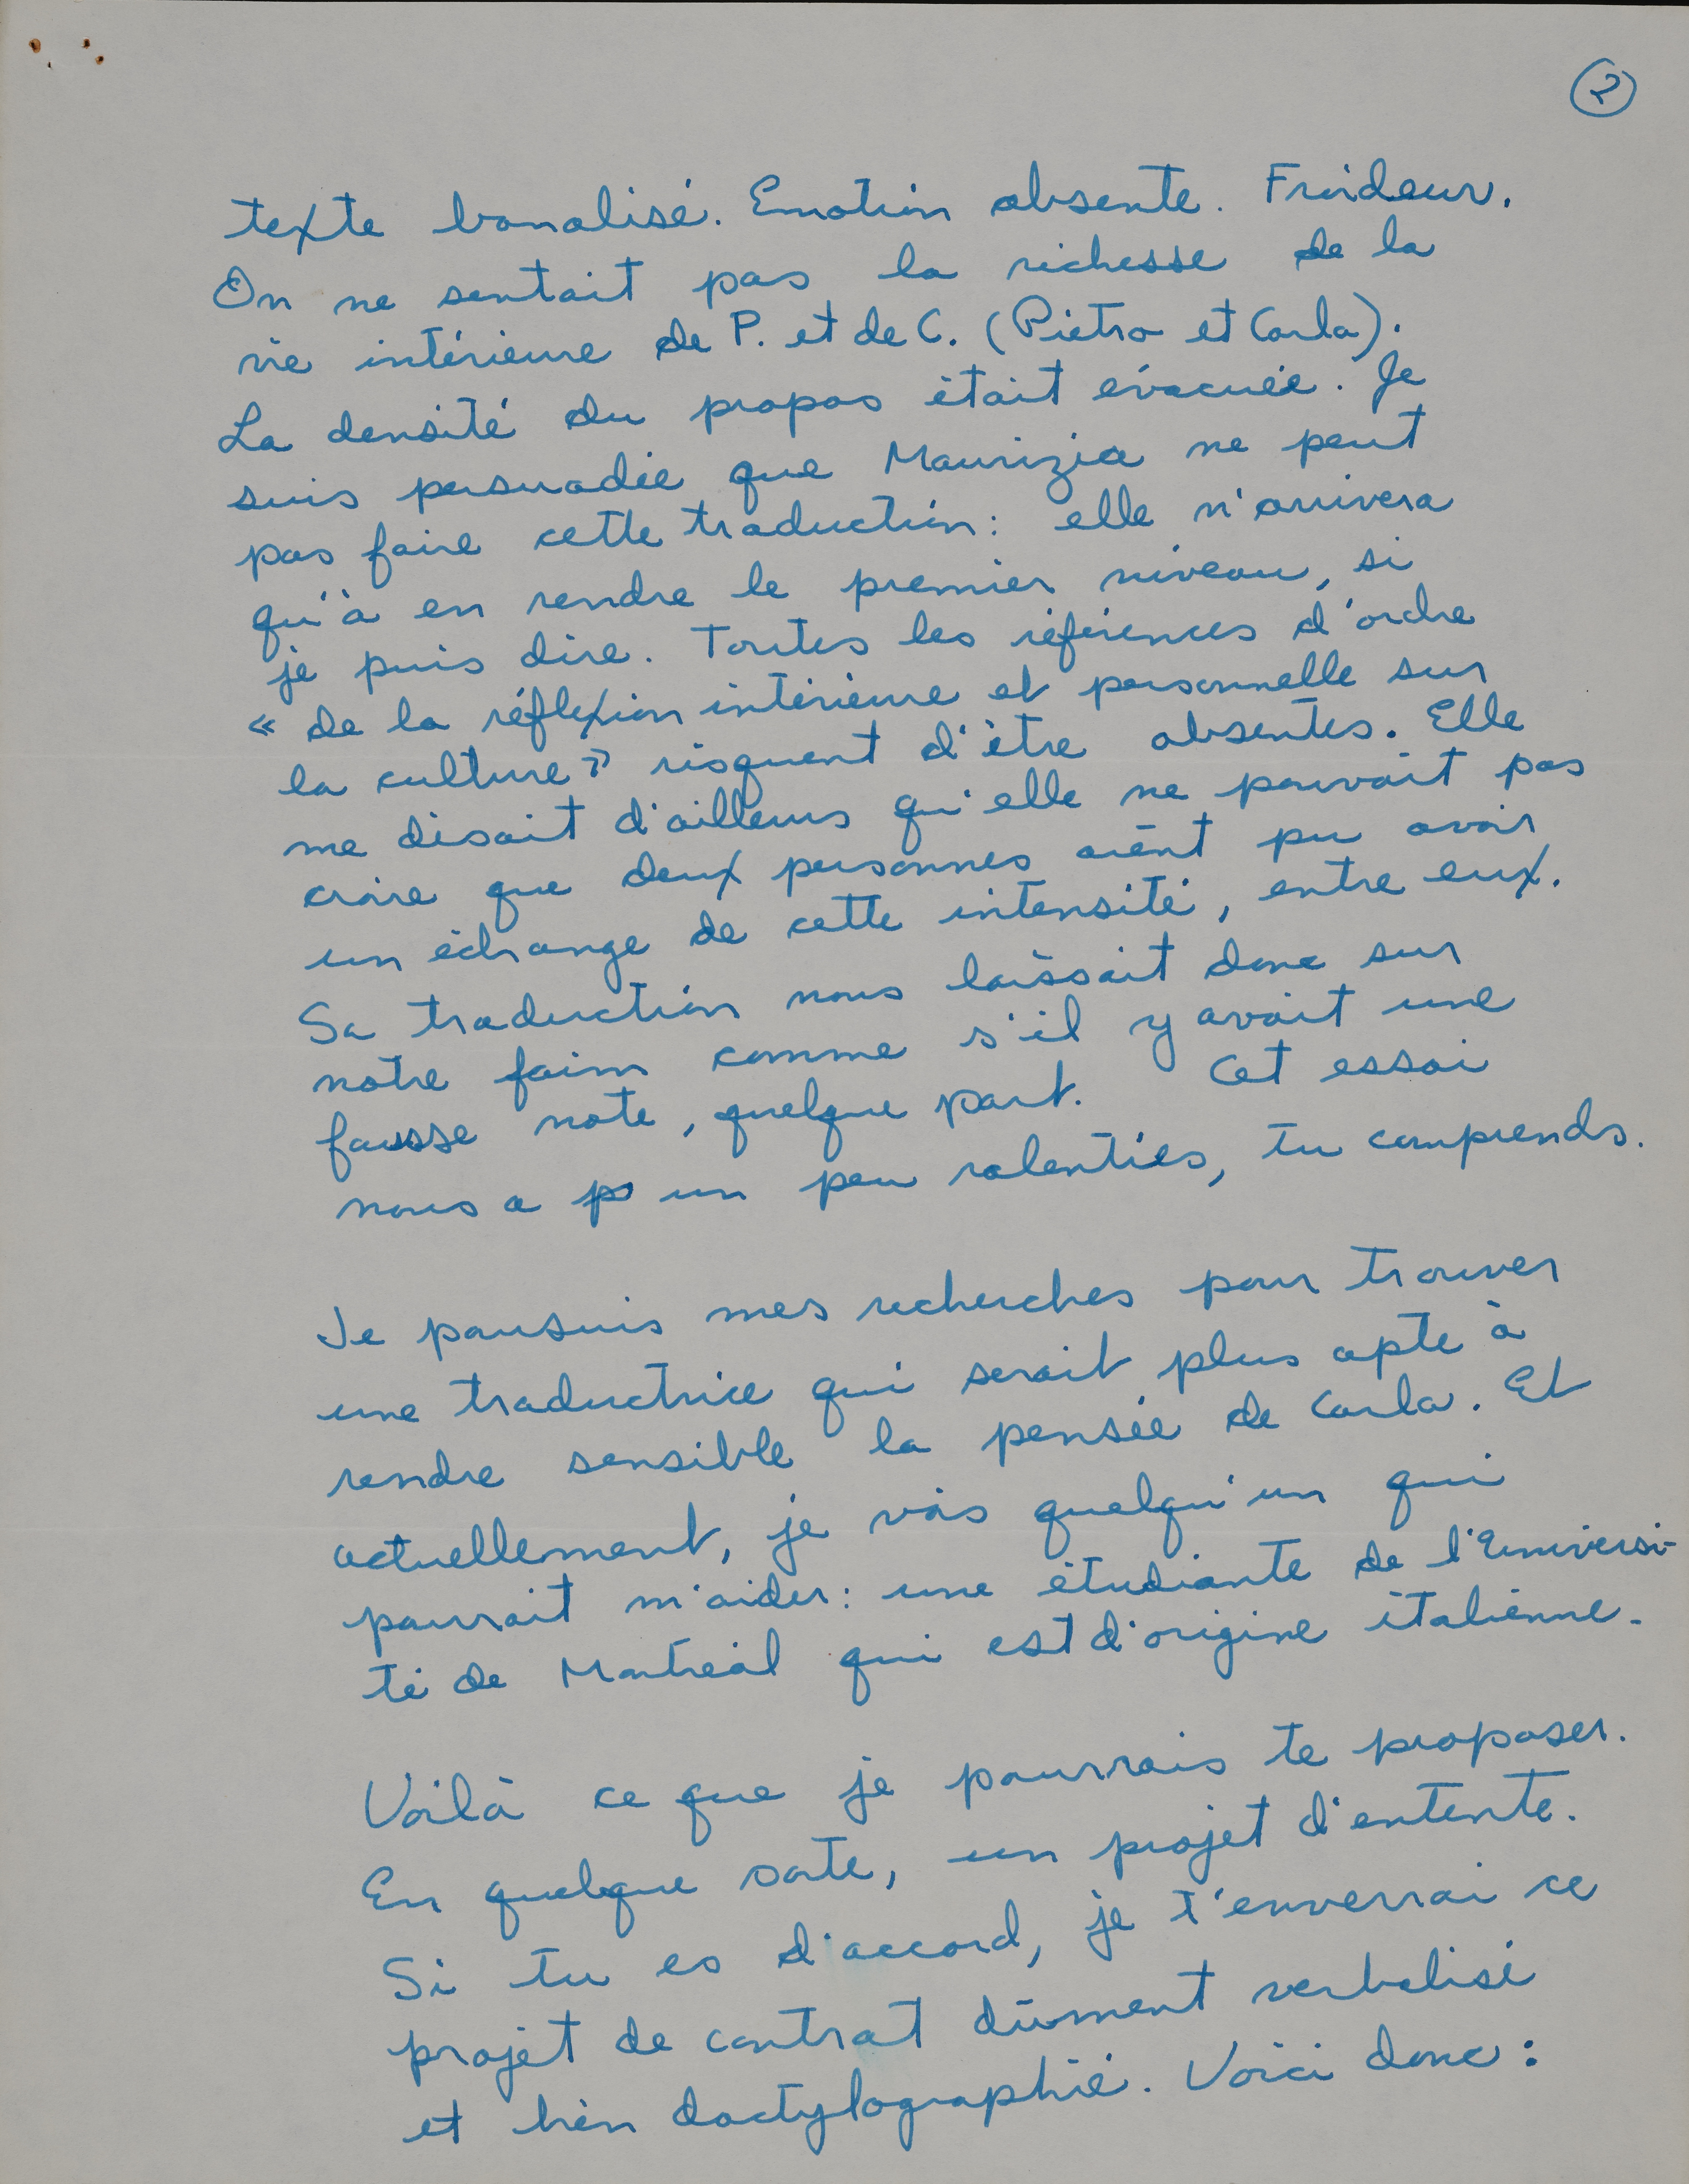 2
texte banalisé. Emotion absente. Froideur.
On ne sentait pas la richesse de la
vie intérieure de P. et de C. (Pietro et Carla).
La densité du propos était évacuée. Je
suis persuadée que Maurizia ne peut
pas faire cette traduction: elle n'arrivera
qu'à en rendre le premier niveau, si
je puis dire. Toutes les références d'ordre
« de la réflexion intérieure et personnelle sur
la culture » risquent d'être absentes. Elle
me disait d'ailleurs qu'elle ne pouvait pas
croire que deux personnes aient pu avoir
un échange de cette intensité, entre eux.
Sa traduction nous laissait donc sur
notre faim comme s'il y avait une
fausse note, quelque part. Cet essai
nous a un peu ralenties, tu comprends.
Je poursuis mes recherches pour trouver
une traductrice qui serait plus apte à
rendre sensible la pensée de Carla. Et
actuellement, je vois quelqu'un qui
pourrait m'aider: une étudiante de l'Universi-
té de Montréal qui est d'origine italienne.
Voilà ce que je pourrais te proposer.
En quelque sorte, un projet d'entente.
Si tu es d'accord, je t'enverrai ce
projet de contrat dûment verbalisé
et bien dactylographié. Voici donc: